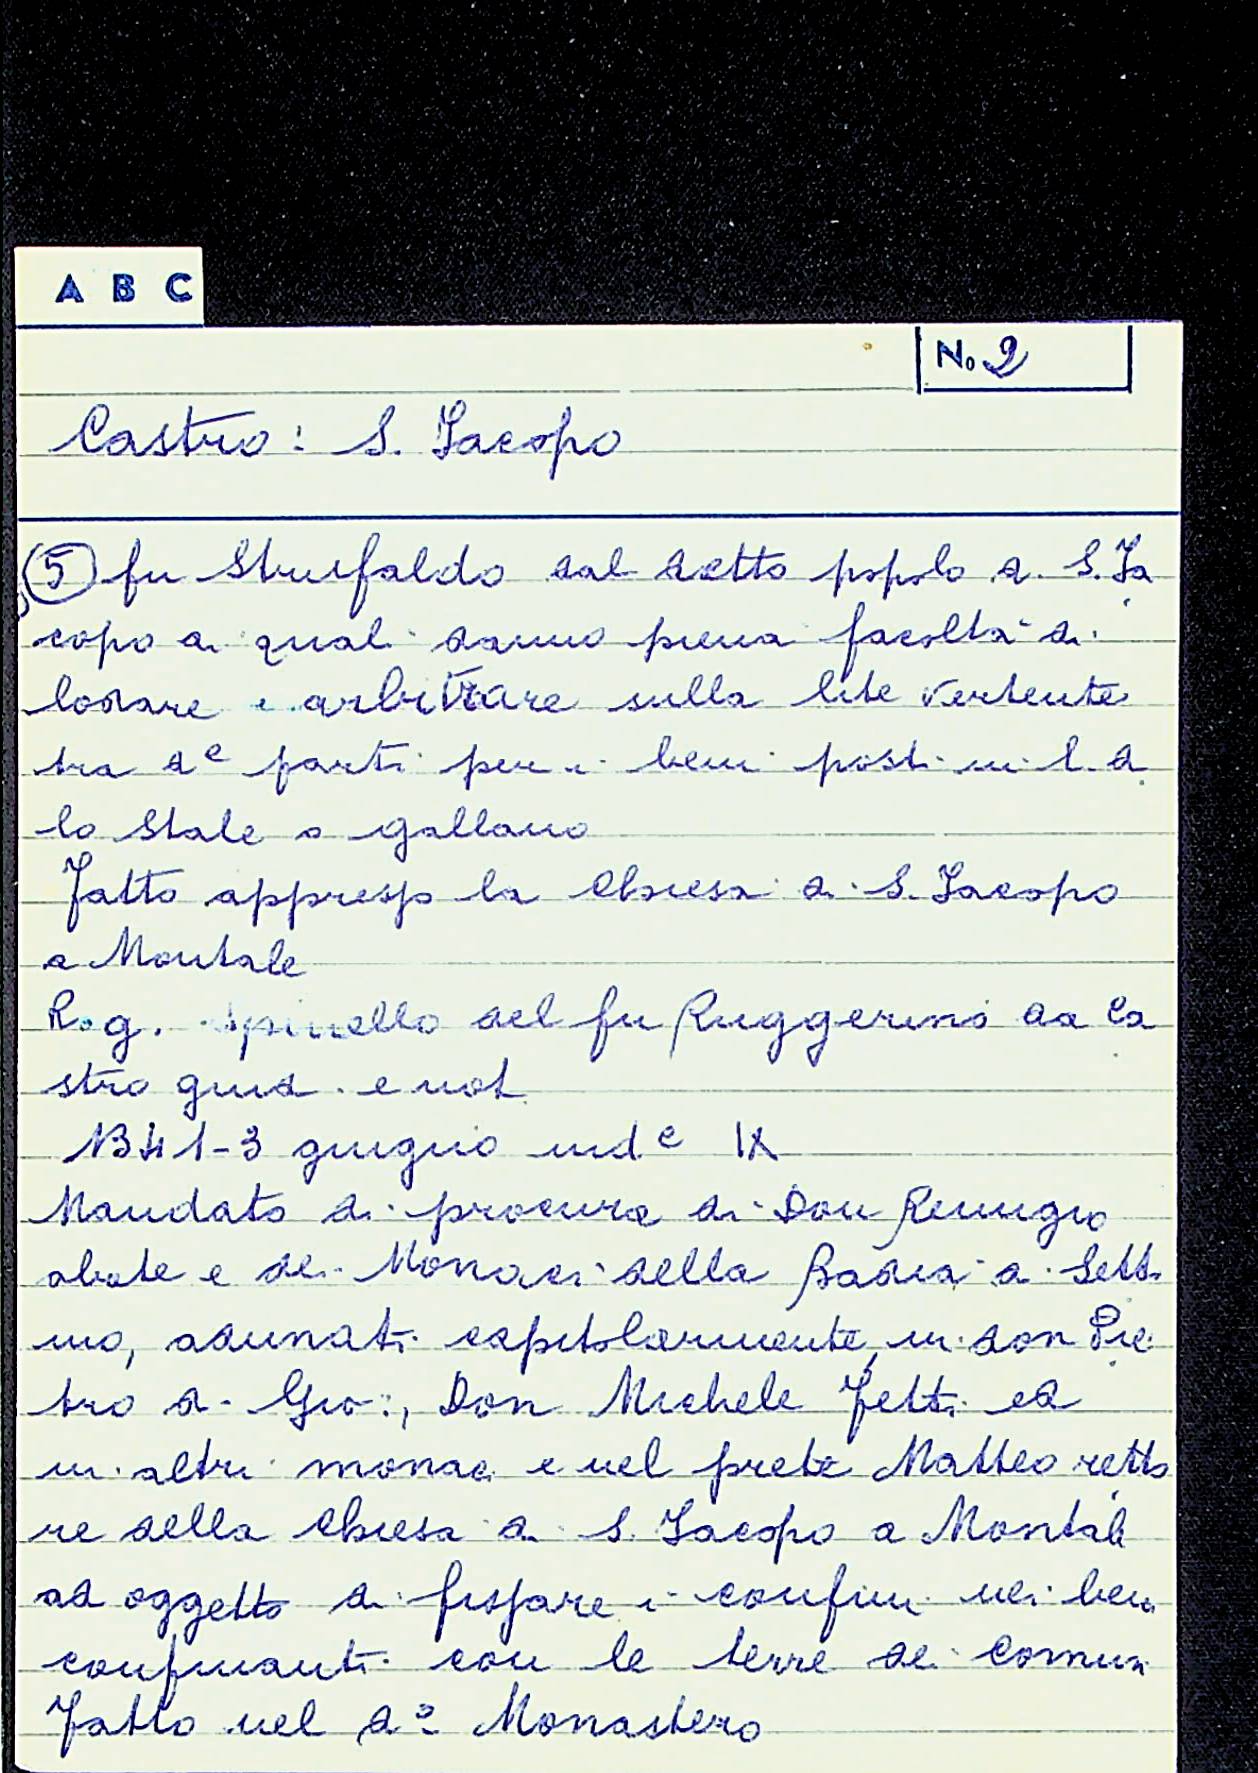 A B C
No 2
Castro: S. Jacopo
(5) fu Strufaldo dal detto popolo di S. Ja
copo ai quali danno piena facoltà di
lodare e arbitrare sulla lite vertente
tra de parti per i beni posti in l. d.
lo Stale o gallano
Fatto appresso la Chiesa di S. Jacopo
a Montale
Rog. Spinello del fu Ruggerino da Ca
stro giud. e not
1341-3 giugno inde IX
Mandato di procura di Don Remigio
abate e dei Monaci della Badia a Setti
mo, adunati capitolarmente, in don Pie
tro di Gio:, Don Michele Fetti ed
in altri monaci e nel prete Matteo retto
re della Chiesa di S. Jacopo a Montale
ad oggetto di fissare i confini nei beni
confinanti con le terre dei comuni
Fatto nel do Monastero